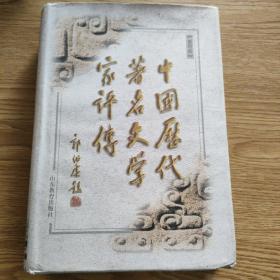 中國歷代
著名文学
家评傳
山东教育出版社